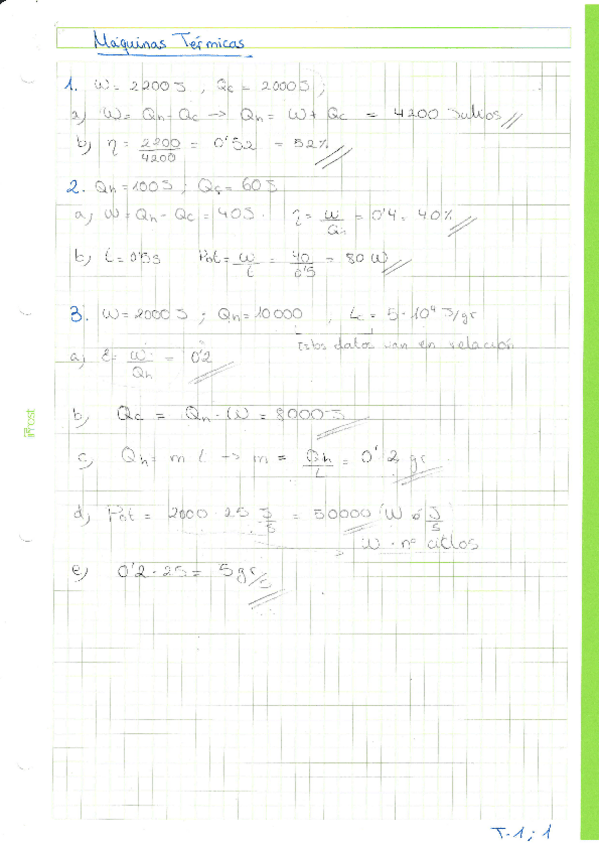 Máquinas Térmicas
1. W = 2200 J , Qc = 2000 J ;
a) W = Qh - Qc → Qh = W + Qc = 4200 Julios
b) η = 2200/4200 = 0'52 = 52%
2. Qh = 100 J ; Qc = 60 J
a) W = Qh - Qc = 40 J. η = W/Qh = 0'4 = 40%
b) t = 0'5 s Pot = W/t = 40/0'5 = 80 W
3. W = 2000 J ; Qh = 10000 , Lc = 5·10⁴ J/gr
estos datos van en relación
a) ε = W/Qh = 0'2
b) Qc = Qh - W = 8000 J
c) Qh = m L → m = Qh/L = 0'2 gr
d) Pot = 2000 · 25 J/s = 50000 W ó J/s
W · nº ciclos
e) 0'2 · 25 = 5 gr/s
T-1 ; 1